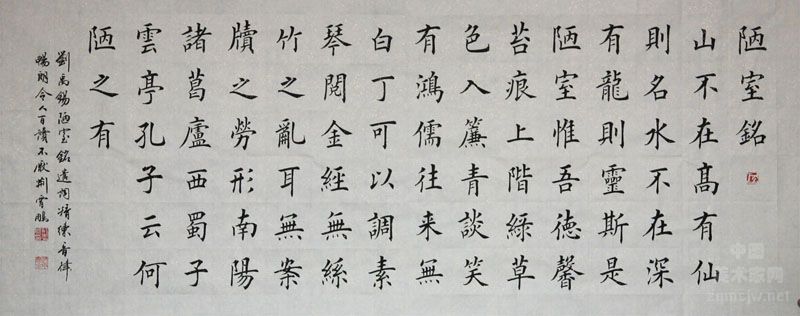 陋室銘
山不在髙有仙
則名水不在深
有龍則靈斯是
陋室惟吾徳馨
苔痕上階綠草
色入簾青談笑
有鴻儒往来無
白丁可以調素
琴閱金經無絲
竹之亂耳無案
牘之勞形南陽
諸葛廬西蜀子
雲亭孔子云何
陋之有
劉禹錫陋室銘遣詞精煉音律
暢朗令人百讀不厭荆霄鵬
中国
美术家网